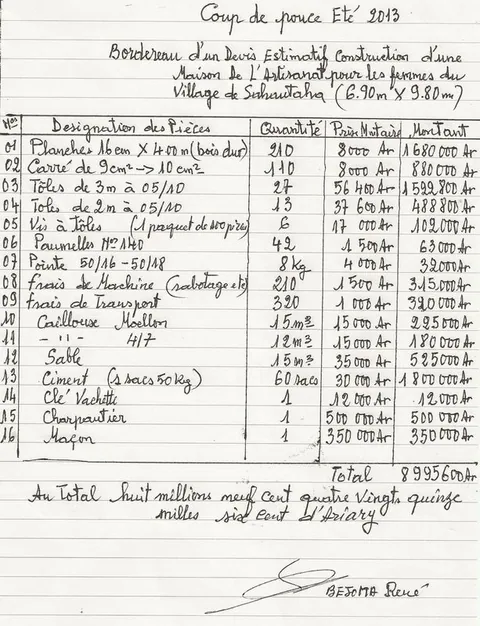 Coup de pouce Eté 2013
Bordereau d'un Devis Estimatif Construction d'une
Maison De L'Artisanat pour les femmes du
Village de Sahoutaha (6.90m X 9.80m)
Nos Designation des Pièces Quantité Prix Unitaire Montant
01 Planches 16cm X 400m (bois dur) 210 8000 Ar 1680000 Ar
02 Carré de 9cm² -> 10cm² 110 8000 Ar 880000 Ar
03 Tôles de 3m à 05/10 27 56 400 Ar 1522800 Ar
04 Toles de 2m à 05/10 13 37 600 Ar 488800 Ar
05 Vis à Tôles (1 paquet de 100 pièces) 6 17 000 Ar 102000 Ar
06 Paumelles N° 140 42 1 500 Ar 63000 Ar
07 Pointe 50/16-50/18 8 kg 4 000 Ar 32000 Ar
08 frais de Machine (sabotage etc) 210 1500 Ar 315000 Ar
09 frais de Transport 320 1 000 Ar 320 000 Ar
10 Caillouse Moellon 15m³ 15 000 Ar 225000 Ar
11 - " - 4/7 12m³ 15000 Ar 180 000 Ar
12 Sable 15m³ 35000 Ar 525000 Ar
13 Ciment (1 sacs 50kg) 60 sacs 30 000 Ar 1 800 000 Ar
14 Clé Vachette 1 12 000 Ar 12000 Ar
15 Charpautier 1 500 000 Ar 500 000 Ar
16 Maçon 1 350 000 Ar 350 000 Ar
Total 8995600 Ar
Au Total huit millions neuf cent quatre Vingts quinze
milles six cent d'Ariary
BEJOMA René